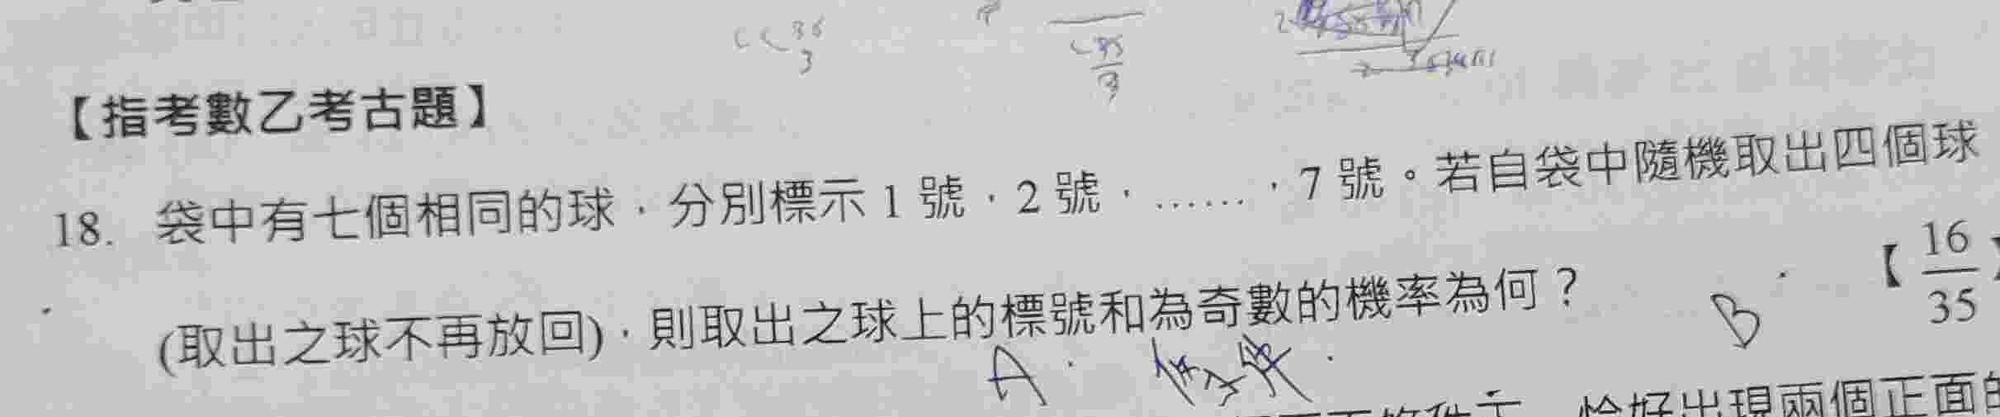 【指考數乙考古題】
18. 袋中有七個相同的球，分別標示 1 號，2 號，……，7 號。若自袋中隨機取出四個球
(取出之球不再放回)，則取出之球上的標號和為奇數的機率為何？ 【16/35】
A B
恰好出現兩個正面的